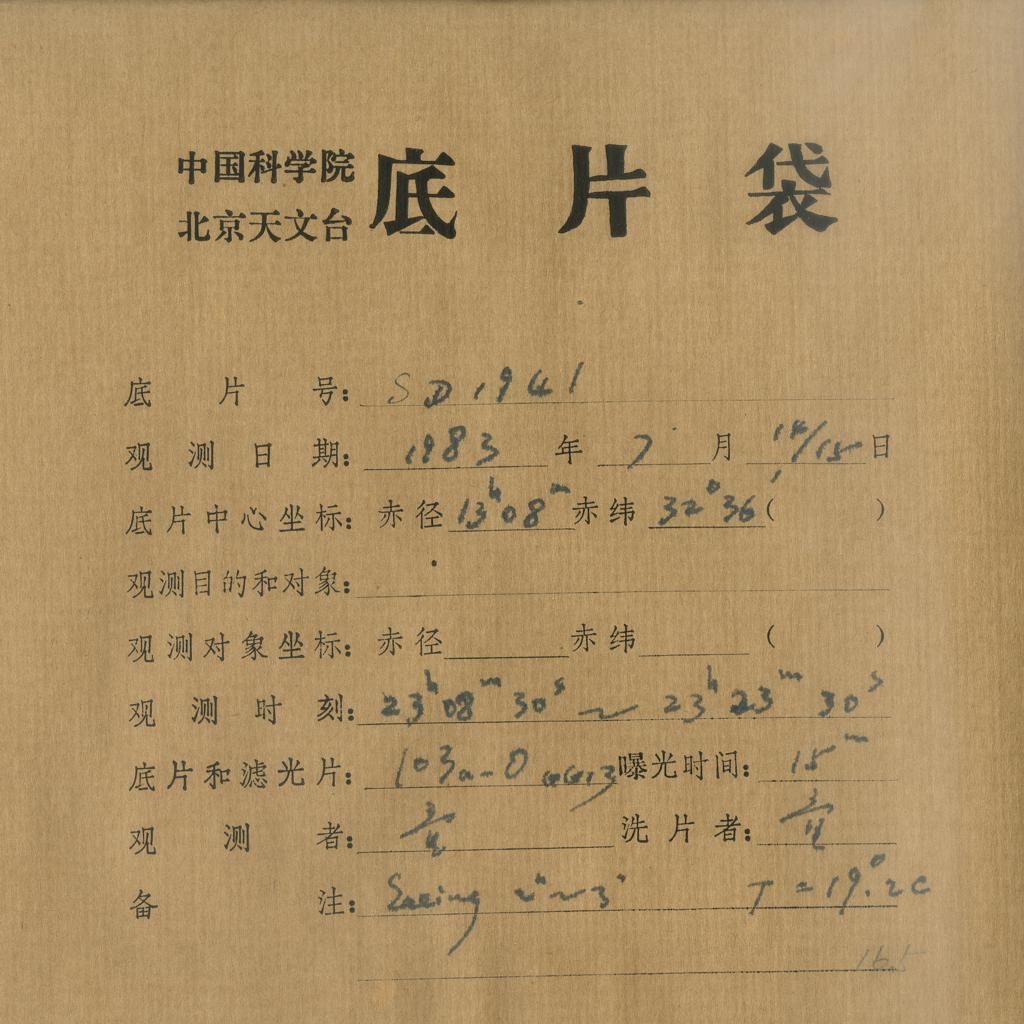 中国科学院
北京天文台 底片袋
底片号: SD1941
观测日期: 1983年 7月 14/15日
底片中心坐标: 赤径 13h08m 赤纬 32°36′( )
观测目的和对象:
观测对象坐标: 赤径 赤纬 ( )
观测时刻: 23h08m30s ~ 23h23m30s
底片和滤光片: 103a-O GG13 曝光时间: 15m
观测者: 洗片者:
备注: Seeing 2″~3″ T=19°.2C